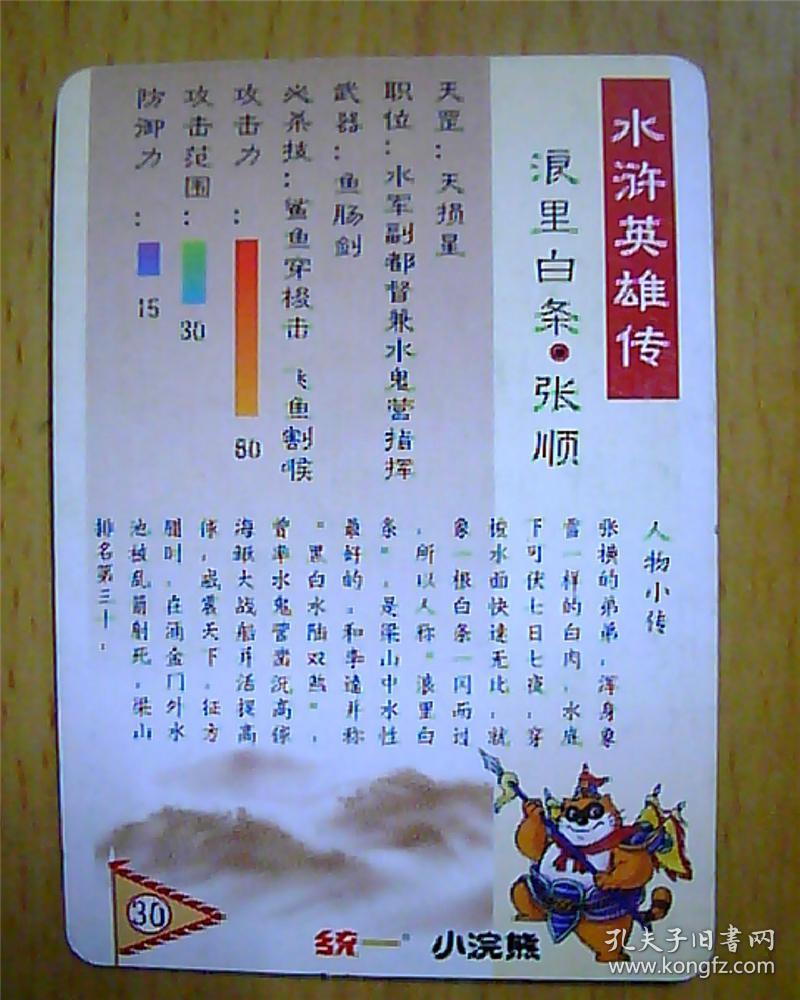 水浒英雄传
浪里白条·张顺
天罡：天损星
职位：水军副都督兼水鬼营指挥
武器：鱼肠剑
必杀技：鲨鱼穿梭击 飞鱼割喉
攻击力：80
攻击范围：30
防御力：15
人物小传
张横的弟弟，浑身象
雪一样的白肉，水底
下可伏七日七夜；穿
梭水面快速无比，就
象一根白条一闪而过
，所以人称“浪里白
条”，是梁山中水性
最好的；和李逵并称
“黑白水陆双煞”，
曾率水鬼营凿沉高俅
海鳅大战船并活捉高
俅，威震天下。征方
腊时，在涌金门外水
池被乱箭射死。梁山
排名第三十。
30
统一® 小浣熊
孔夫子旧書网
www.kongfz.com